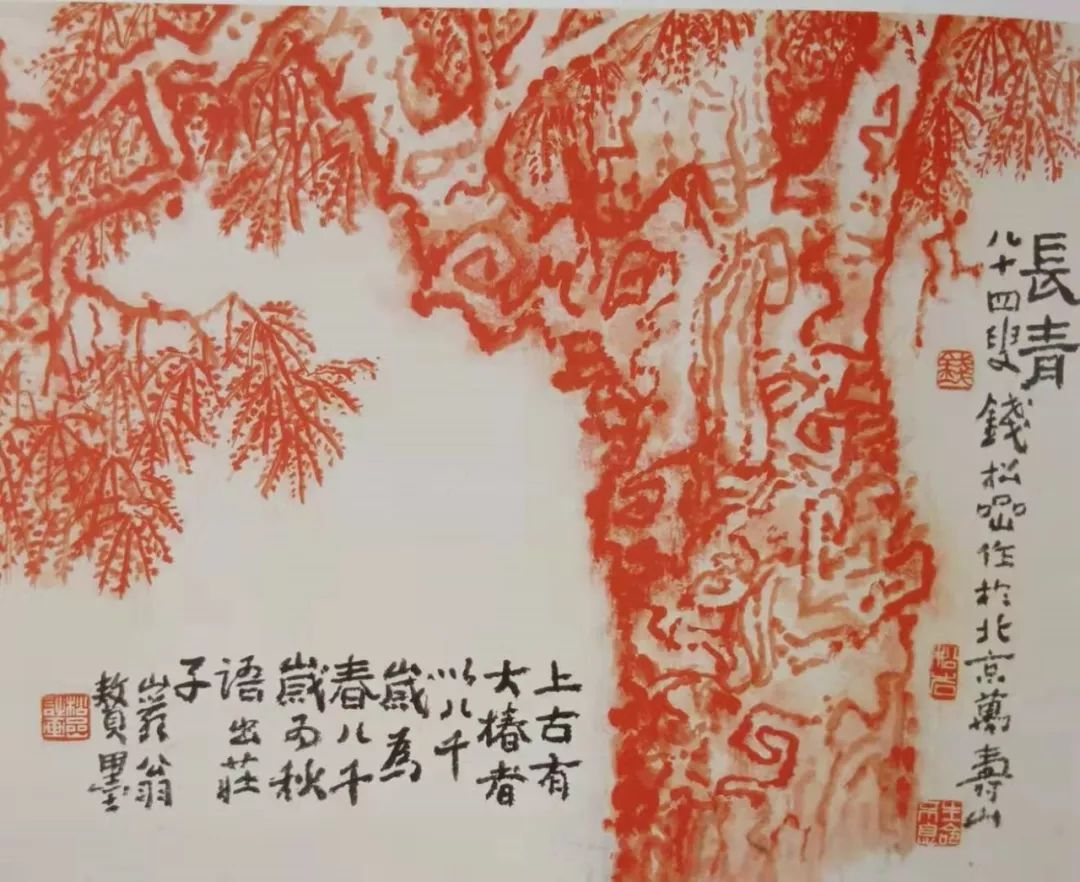 長青
八十四叟 錢松喦作於北京萬壽山
錢
生命不息
上古有
大椿者
以八千
歲為
春八千
歲为秋
語出莊
子
翁
贅墨